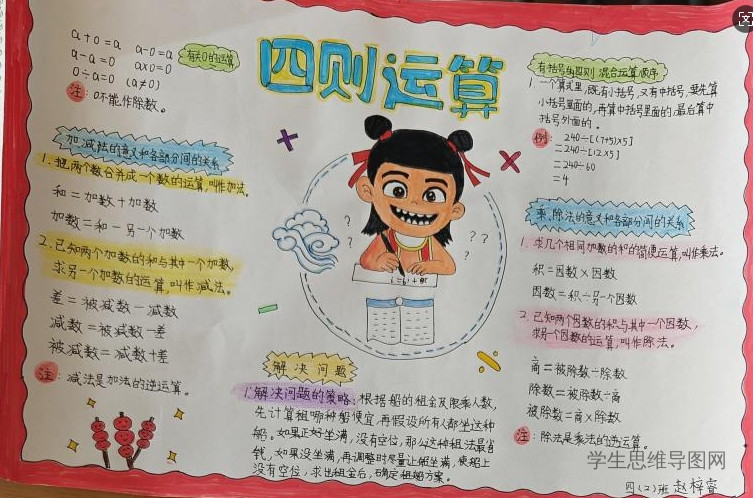 四则运算
a+0=a a-0=a
a-a=0 a×0=0
0÷a=0 (a≠0)
有关0的运算
注:0不能作除数。
加、减法的意义和各部分间的关系
1、把两个数合并成一个数的运算,叫作加法。
和=加数+加数
加数=和-另一个加数
2、已知两个加数的和与其中一个加数,
求另一个加数的运算,叫作减法。
差=被减数-减数
减数=被减数-差
被减数=减数+差
注:减法是加法的逆运算。
解决问题
1.解决问题的策略:根据船的租金及限乘人数,
先计算租哪种船便宜,再假设所有人都坐这种
船。如果正好坐满,没有空位,那么这种租法最省
钱,如果没坐满,再调整时尽量让船坐满,使船上
没有空位,求出租金后,确定租船方案。
有括号的四则混合运算顺序
1、一个算式里,既有小括号,又有中括号,要先算
小括号里面的,再算中括号里面的,最后算中
括号外面的。
例: 240÷[(7+5)×5]
=240÷[12×5]
=240÷60
=4
乘、除法的意义和各部分间的关系
1、求几个相同加数的和的简便运算,叫作乘法。
积=因数×因数
因数=积÷另一个因数
2、已知两个因数的积与其中一个因数,
求另一个因数的运算,叫作除法。
商=被除数÷除数
除数=被除数÷商
被除数=商×除数
注:除法是乘法的逆运算。
学生思维导图网
四(2)班 赵梓睿